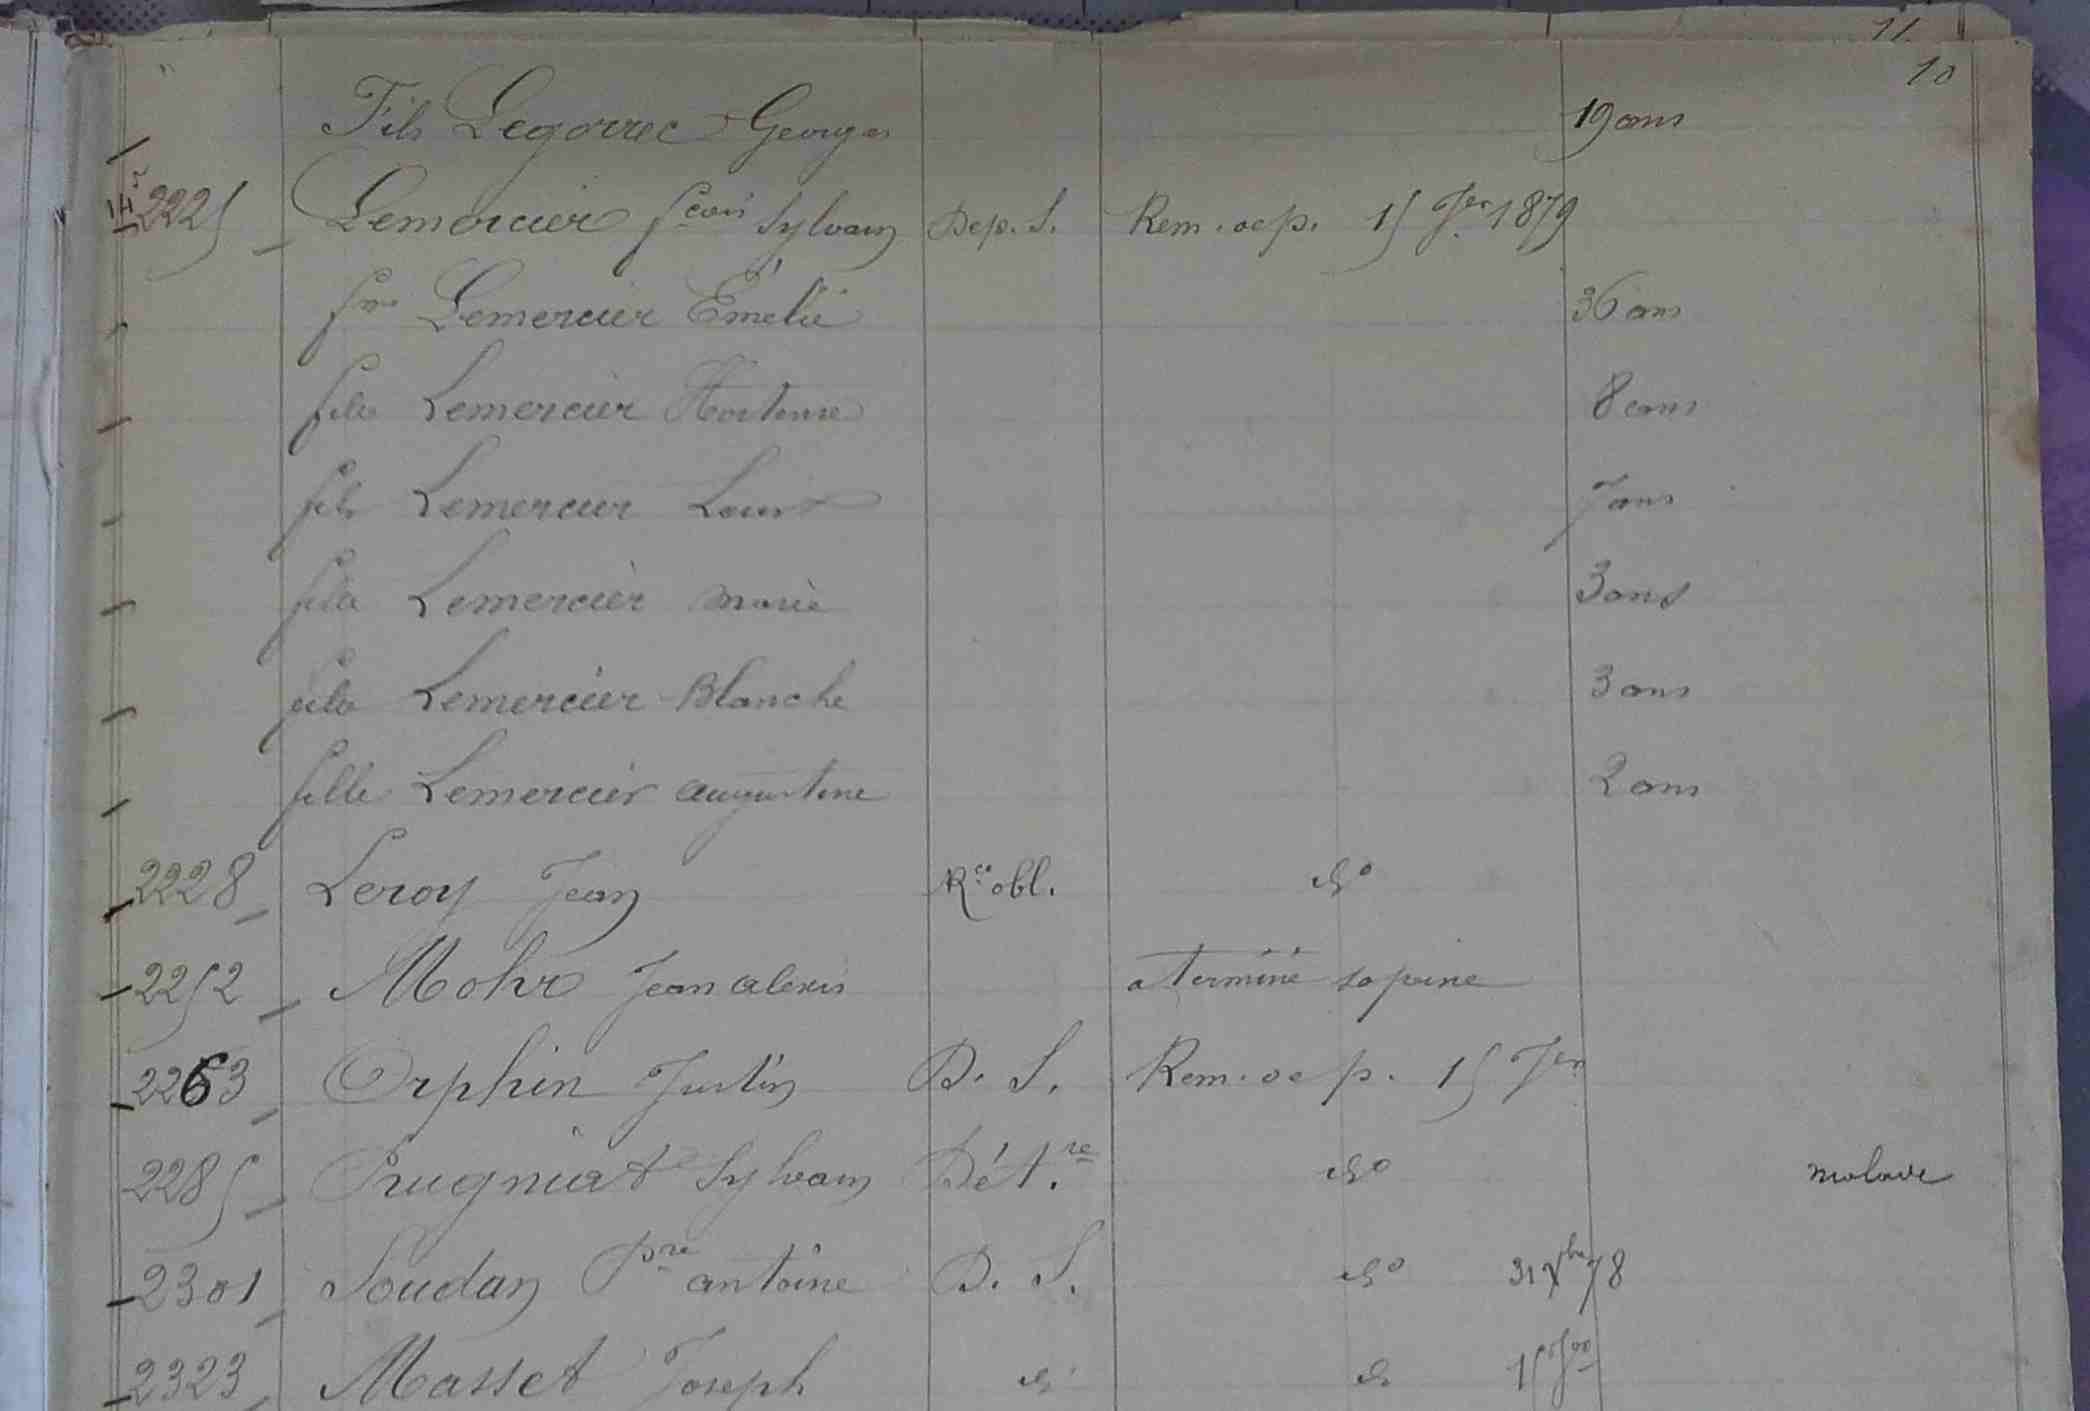 11
10
Fils Legorrec Georges 19 ans
2225 Lemercier fcois Sylvain Dep. S. Rem. de p. 15 Jer 1879
fme Lemercier Émélie 36 ans
fille Lemercier Hortense 8 ans
fils Lemercier Louis 7 ans
fille Lemercier Marie 3 ans
fille Lemercier Blanche 3 ans
fille Lemercier augustine 2 ans
2228 Leroy Jean Rce obl. do
2252 Mohr Jean alexis a terminé sa peine
2263 Orphin Justin D. S. Rem. de p. 15 Jer
2285 Prugniat Sylvain Dét.re do malade
2301 Soudan Pre antoine D. S. do 31 Xbre 78
2323 Masset Joseph do do 15 Jer